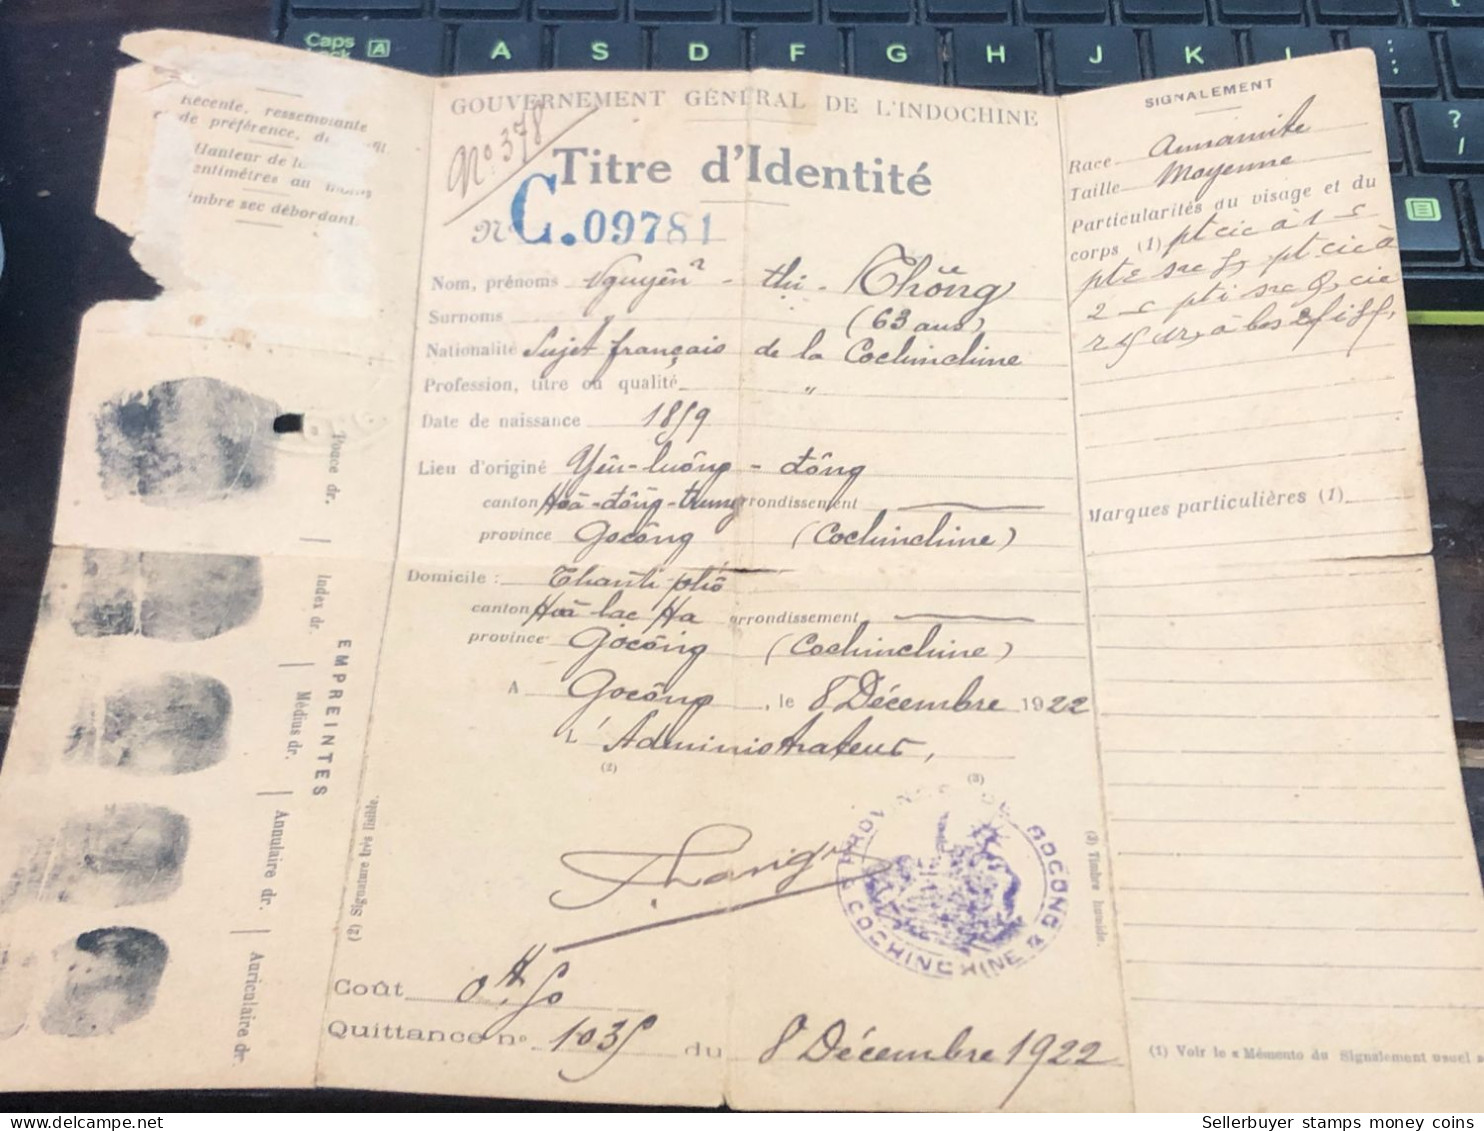 Caps Lock A
A S D F G H J K L
Récente, ressemblante
de préférence, de
Hauteur de la
centimètres au moins
Timbre sec débordant.
GOUVERNEMENT GÉNÉRAL DE L'INDOCHINE
Nº 378
Titre d'Identité
Nº C.09781
Nom, prénoms Nguyên - thi - Thông
Surnoms (63 ans)
Nationalité Sujet français de la Cochinchine
Profession, titre ou qualité "
Date de naissance 1859
Lieu d'origine Yên-luông-đông
canton Hoà-đông-trung arrondissement
province Gocông (Cochinchine)
Domicile : Thanh-phô
canton Hoà lac Ha arrondissement
province Gocông (Cochinchine)
A Gocông, le 8 Décembre 1922
L'Administrateur,
(2) (3)
PROVINCE DE GOCONG
COCHINCHINE
Coût 0$50
Quittance nº 1035 du 8 Décembre 1922
SIGNALEMENT
Race Annamite
Taille Moyenne
Particularités du visage et du
corps (1) pt cic à 1 c
pte src g, pt cic à
2 c pti src
Marques particulières (1)
(1) Voir le « Mémento du Signalement usuel »
EMPREINTES
Pouce dr.
Index dr.
Médius dr.
Annulaire dr.
Auriculaire dr.
(2) Signature très lisible.
(3) Timbre humide.
Sellerbuyer stamps money coins